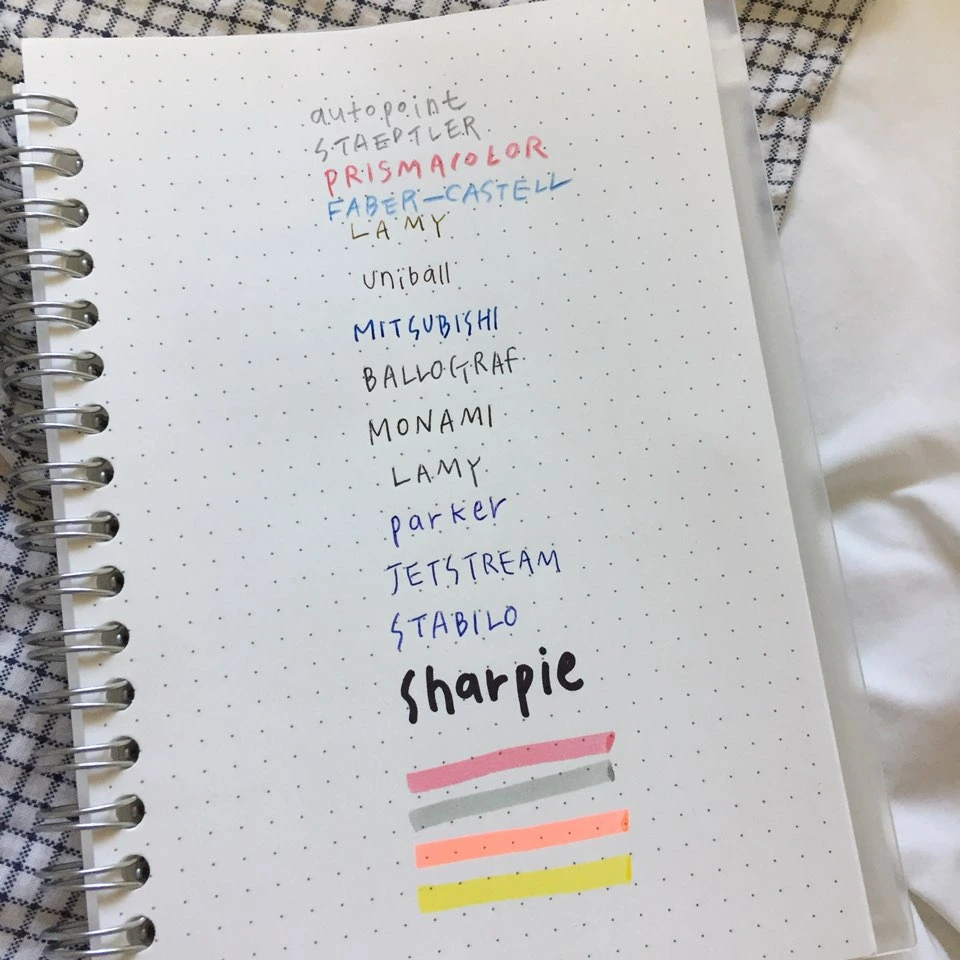 autopoint
STAEDTLER
PRISMACOLOR
FABER-CASTELL
LAMY
uniball
MITSUBISHI
BALLOGRAF
MONAMI
LAMY
parker
JETSTREAM
STABILO
Sharpie